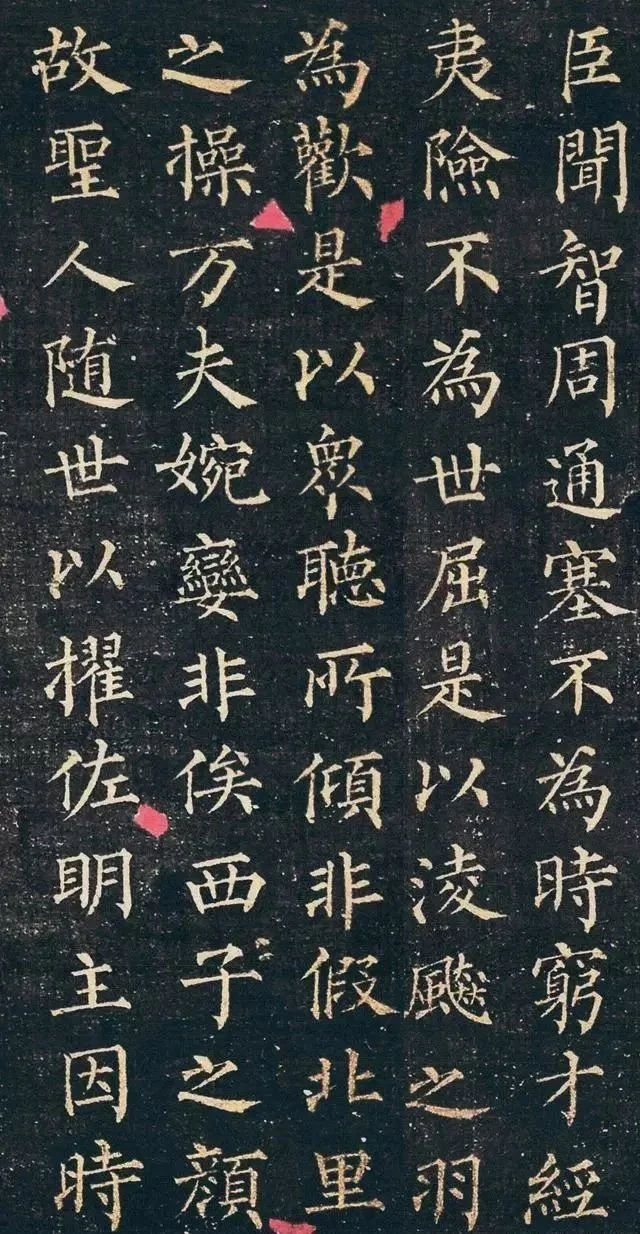 臣聞智周通塞不為時窮才經
夷險不為世屈是以淩飈之羽
為歡是以衆聽所傾非假北里
之操万夫婉孌非俟西子之顔
故聖人随世以擢佐明主因時